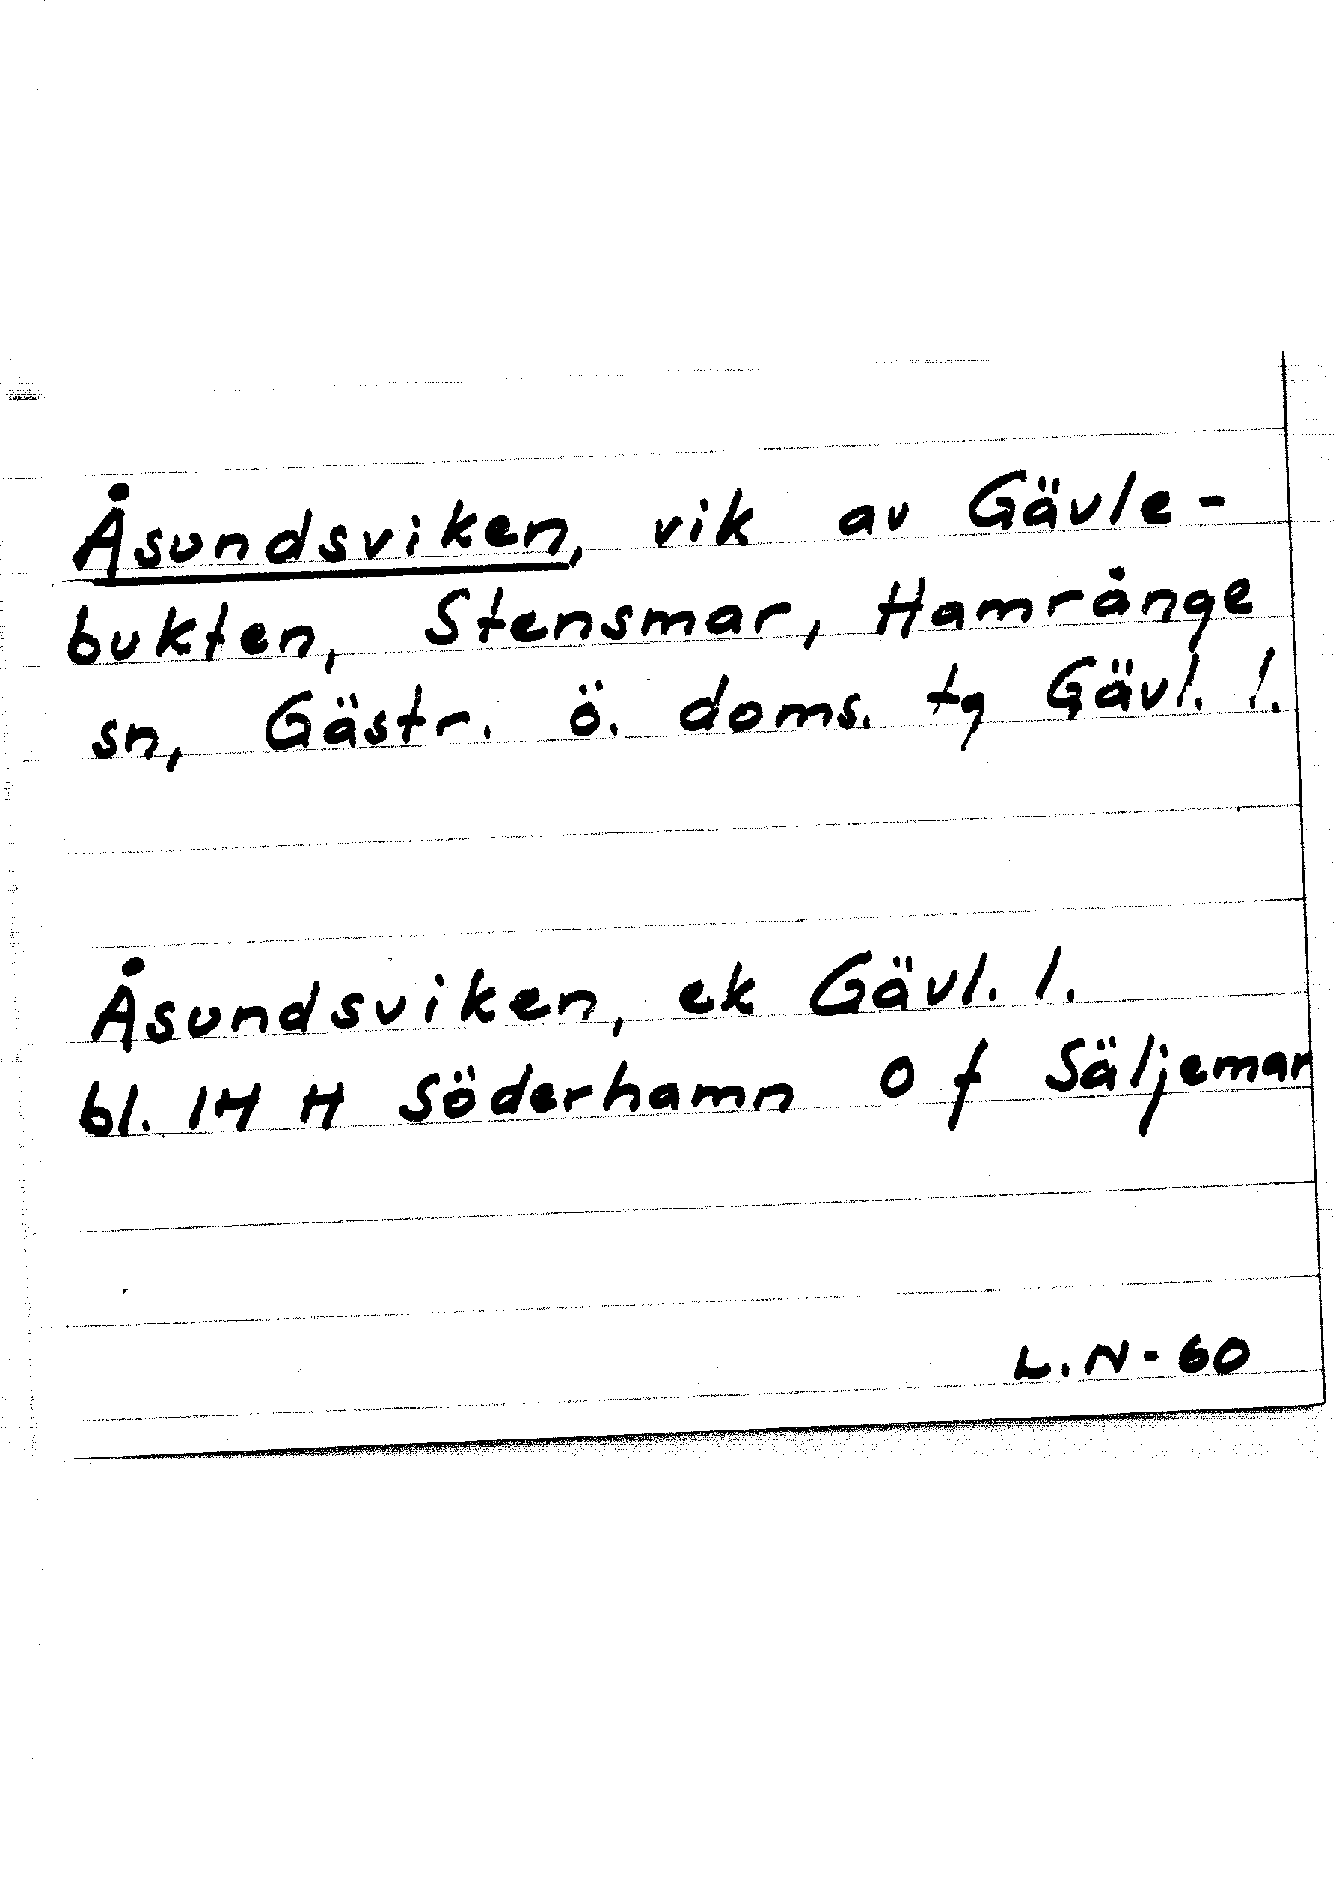 Åsundsviken, vik av Gävle-
bukten, Stensmar, Hamrånge
sn, Gästr. ö. doms. tg Gävl. l.
Åsundsviken, ek Gävl. l.
bl. 14 H Söderhamn 0 f Säljemar
L.N-60